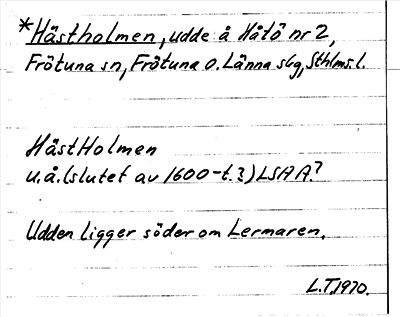 *Hästholmen, udde å Håtö nr 2,
Frötuna sn, Frötuna o. Länna skg, Sthlms l.
HästHolmen
u.å. (slutet av 1600-t.?) LSA A.7
Udden ligger söder om Lermaren.
L.T. 1970.